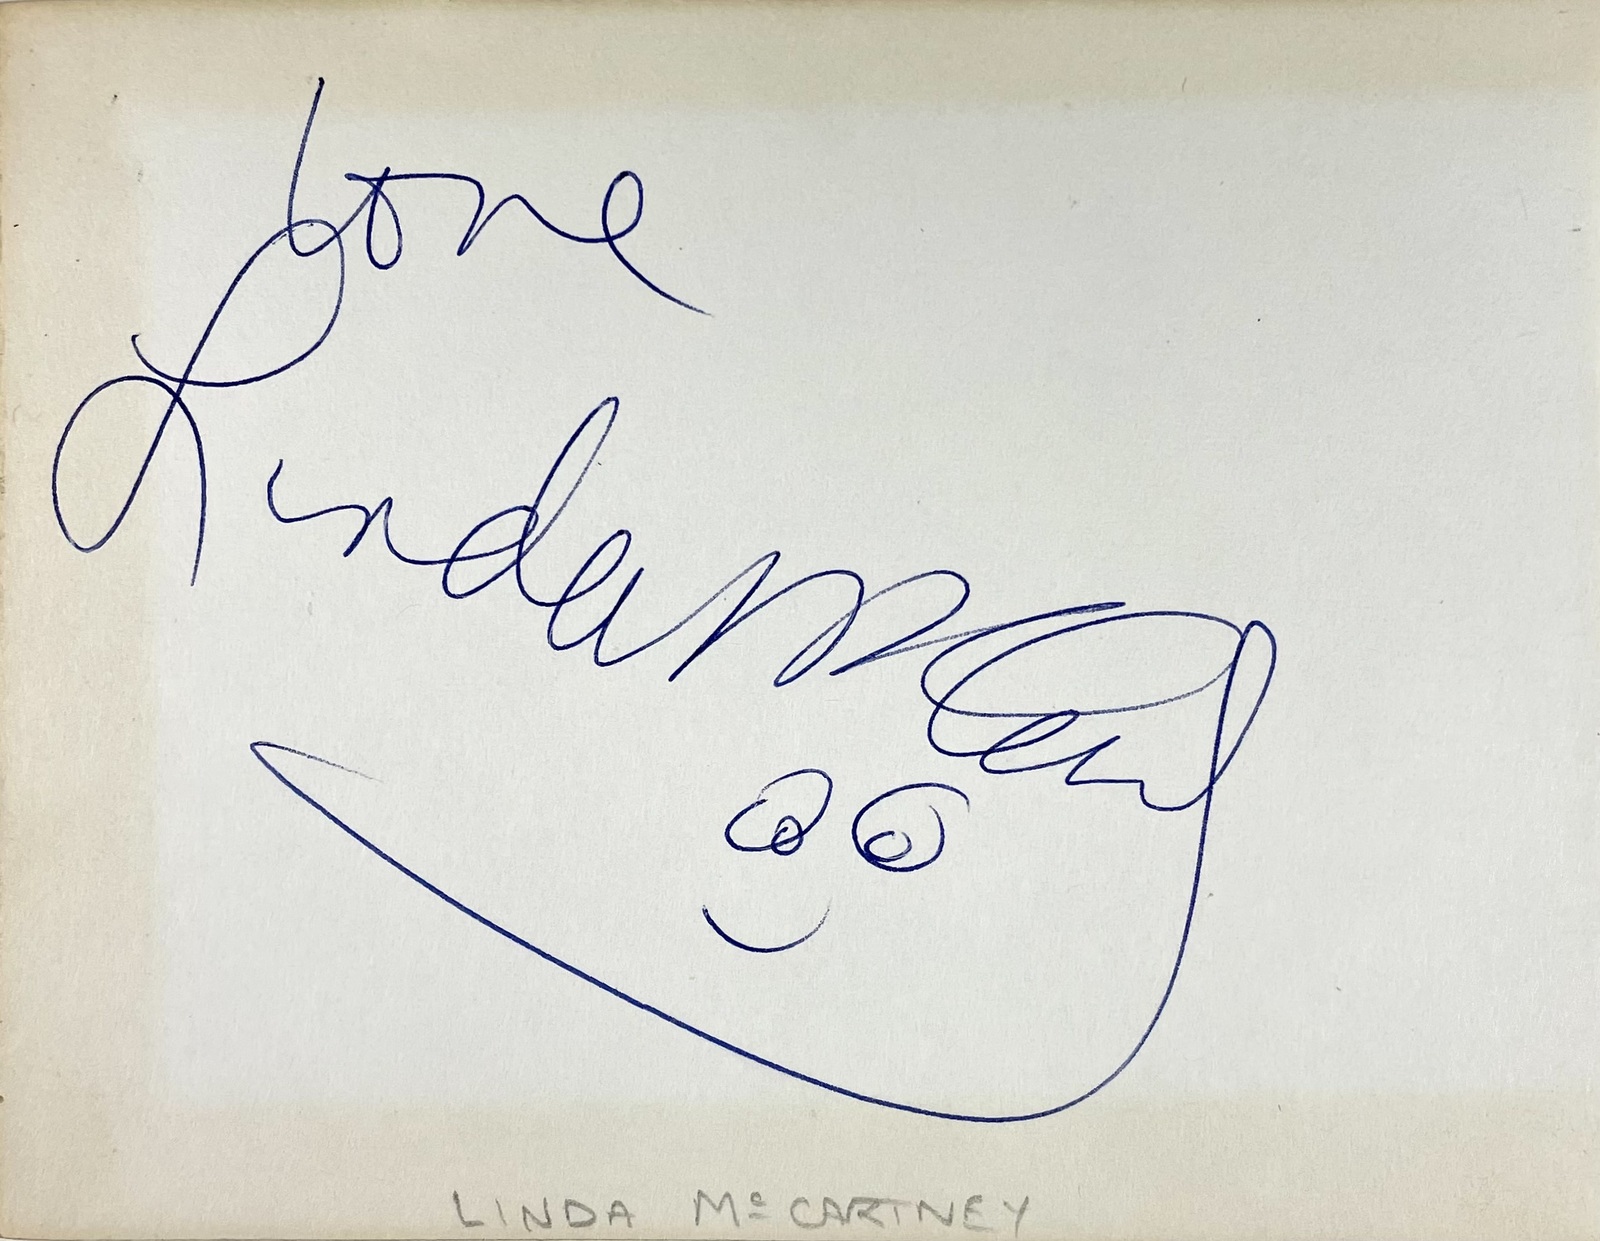 Love
Linda McCartney
LINDA McCARTNEY